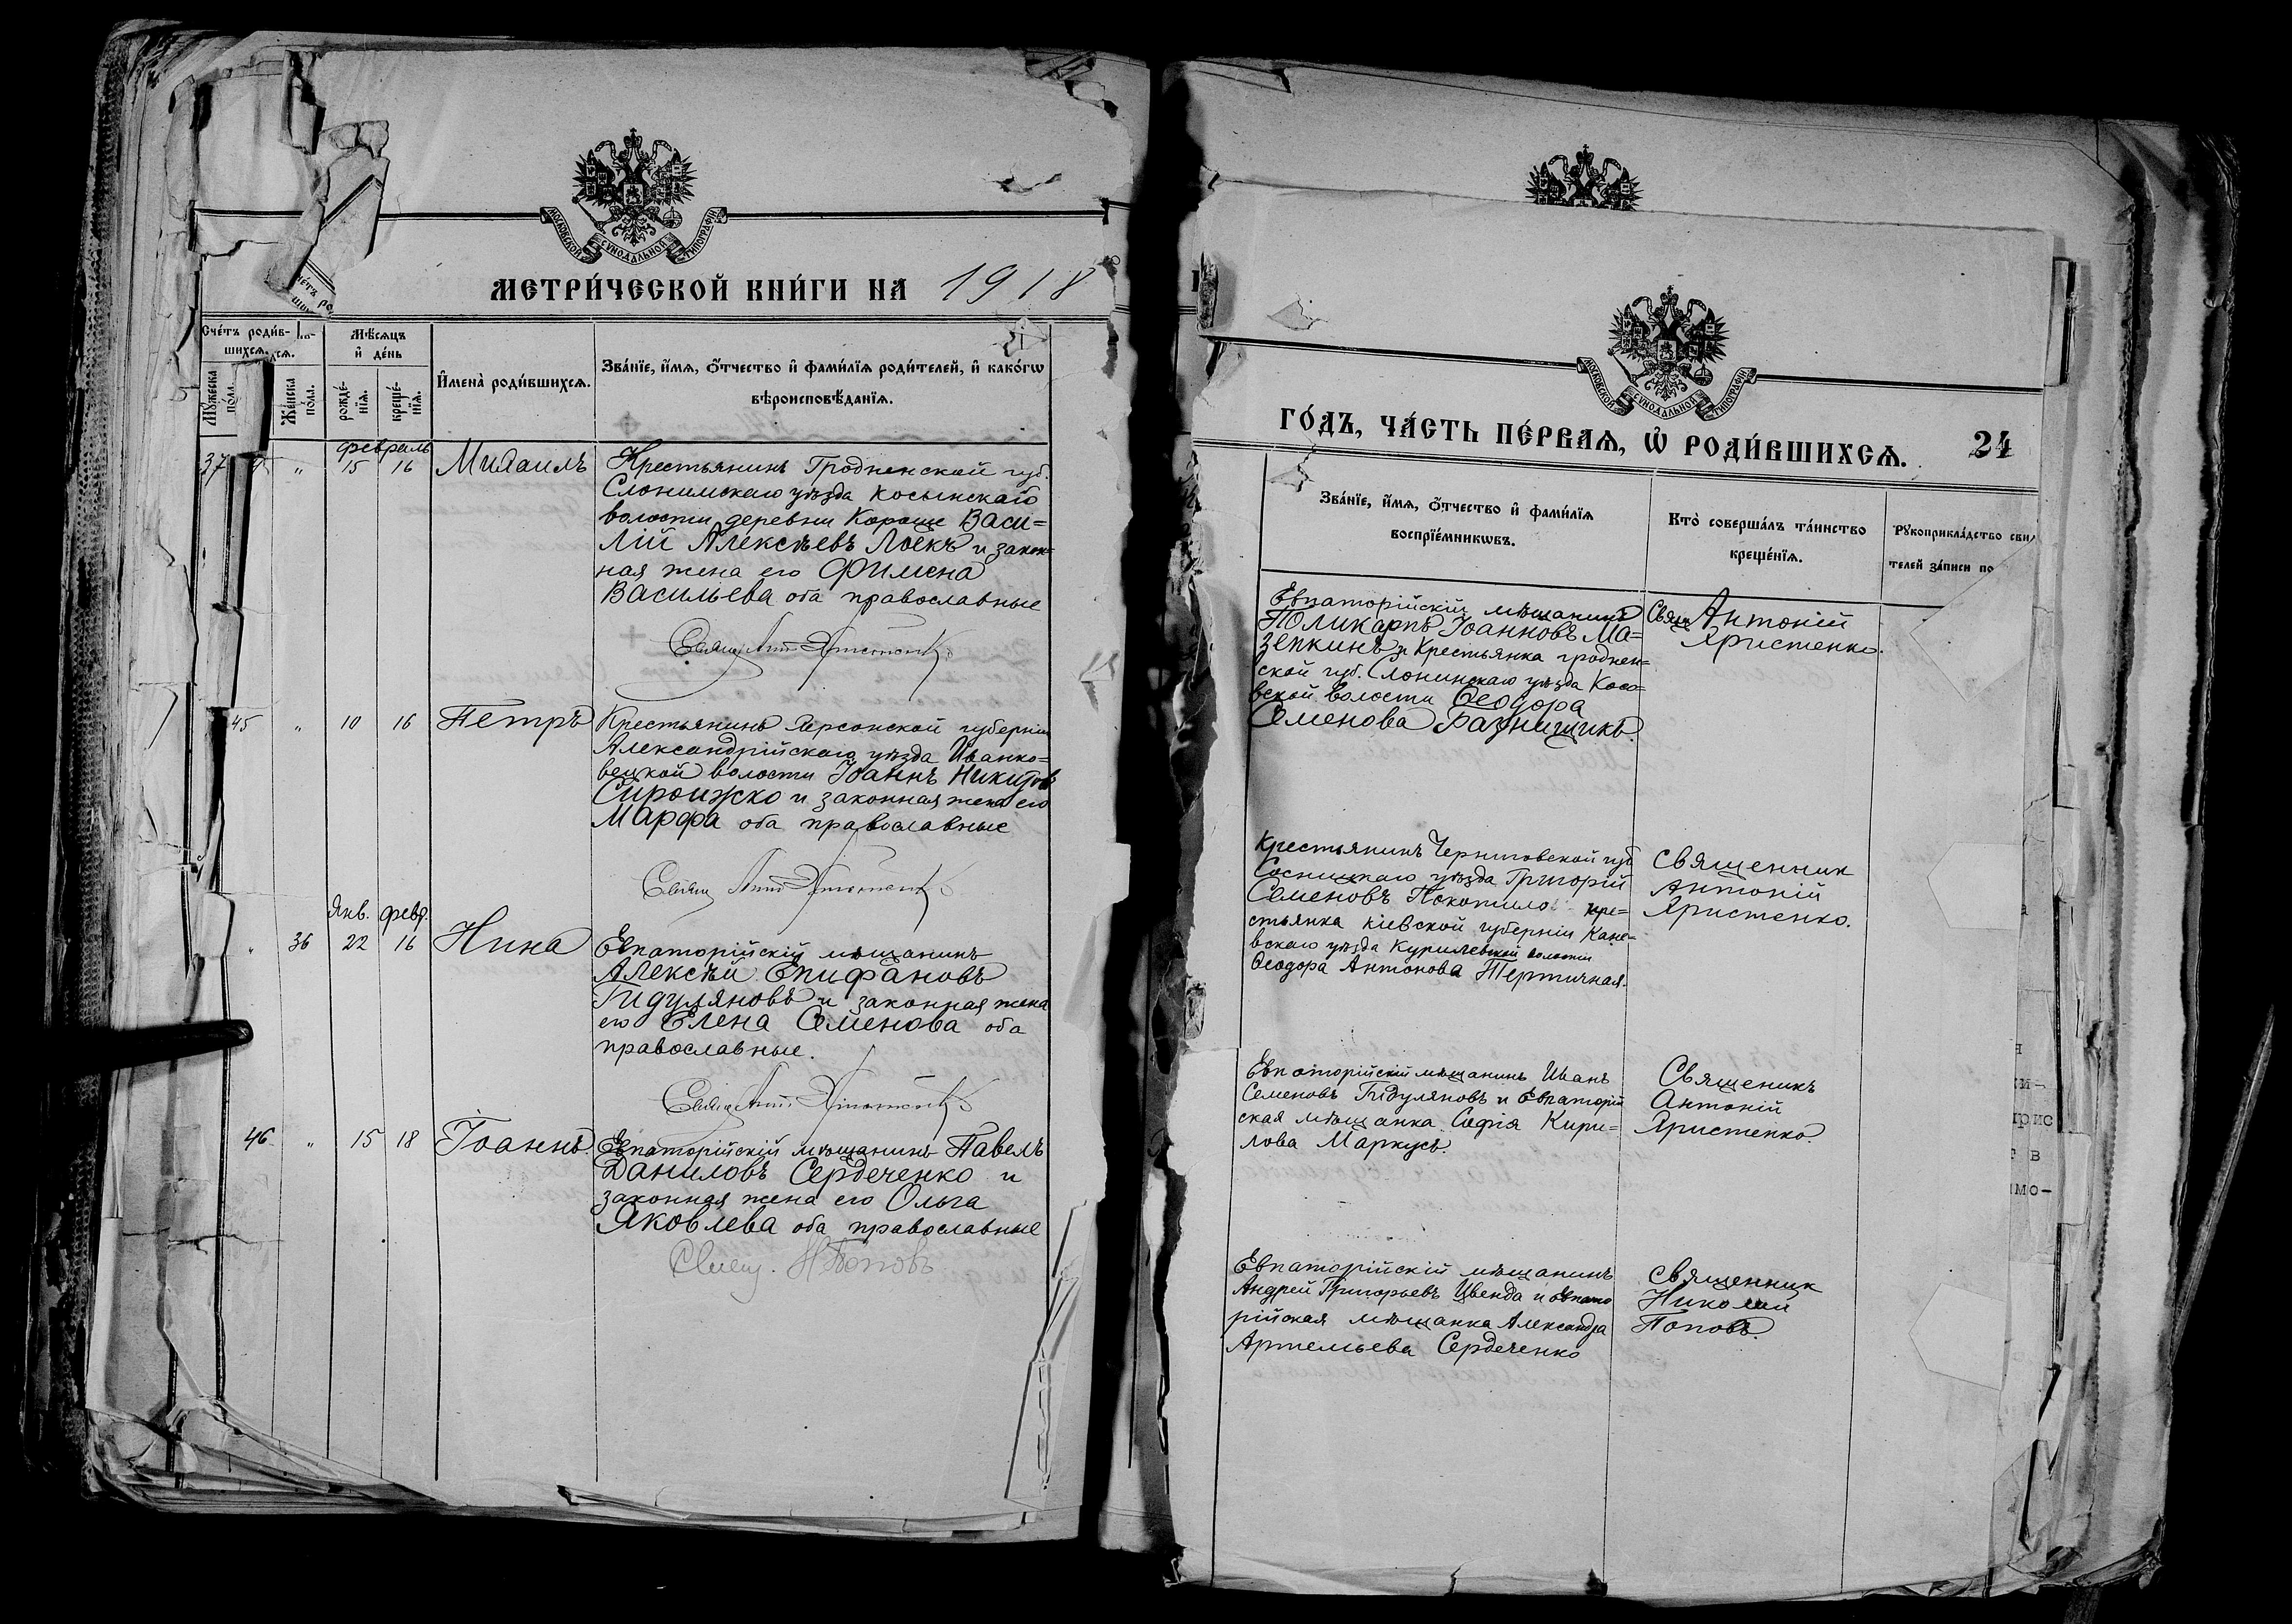 МОСКОВСКОЙ СѴНОДАЛЬНОЙ ТИПОГРАФІИ
МЕТРИ́ЧЕСКОЙ КНИ́ГИ НА 1918
Сче́тъ роди́в-
шихсѧ.
Мѣ́сѧцъ
и҆ де́нь
Мꙋ́жеска
по́ла.
Же́нска
по́ла.
рожде́-
нїѧ.
креще́-
нїѧ.
И҆мена̀ роди́вшихсѧ.
Зва́нїе, и҆́мѧ, ѻ҆́тчество и҆ фами́лїѧ роди́телей, и҆ како́гѡ
вѣроисповѣ́данїѧ.
февраль
37 „ 15 16 Михаилъ
Крестьянинъ Гродненской губ.
Слонимскаго уѣзда Косынскаго
волости деревни Кораще Васи=
лій Алексѣевъ Лоекъ и закон=
ная жена его Фимена
Васильева оба православные
45 „ 10 16 Петръ
Крестьянинъ Херсонской губерніи
Александрійскаго уѣзда Иванко=
вецкой волости Іоаннъ Никитовъ
и законная жена его
Марфа оба православные
Янв. февр.
„ 36 22 16 Нина
Евпаторійскій мѣщанинъ
Алексѣй Епифановъ
Гидуляновъ и законная жена
его Елена Семенова оба
православные.
46 „ 15 18 Іоаннъ
Евпаторійскій мѣщанинъ Павелъ
Даниловъ Сердеченко и
законная жена его Ольга
Яковлева оба православные
Свящ. Н Поповъ
МОСКОВСКОЙ СѴНОДАЛЬНОЙ ТИПОГРАФІИ
ГО́ДЪ, ЧА́СТЬ ПЕ́РВАѦ, Ѡ҆ РОДИ́ВШИХСѦ. 24
Зва́нїе, и҆́мѧ, ѻ҆́тчество и҆ фами́лїѧ
воспрїе́мникѡвъ.
Кто̀ соверша́лъ та́инство
креще́нїѧ.
Рꙋкоприкла́дство сви
телей за́писи по
Евпаторійскій мѣщанинъ
Поликарпъ Іоанновъ Ма=
зепкинъ и крестьянка гроднен=
ской губ. Слонимскаго уѣзда Косо=
вской волости Ѳеодора
Семенова
Свящ Антоній
Христенко.
Крестьянинъ Черниговской губ
Сосницкаго уѣзда Григорій
Семеновъ Покотило кре=
стьянка кіевской губерніи Кане=
вскаго уѣзда Курилевской волости
Ѳеодора Антонова Тертичная.
Священник
Антоній
Христенко.
Евпаторійскій мѣщанинъ Иванъ
Семеновъ Гидуляновъ и Евпаторій
ская мѣщанка Софія Кири=
лова Маркусъ.
Священикъ
Антоній
Христенко.
Евпаторійскій мѣщанинъ
Андрей Григорьевъ Цвенда и Евпато
рійская мѣщанка Александра
Артемьева Сердеченко
Священник
Николай
Поповъ.